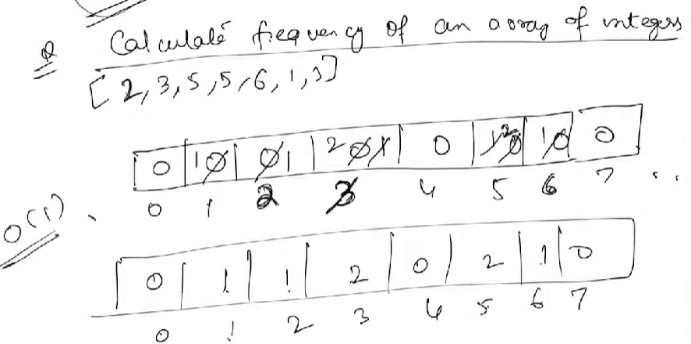 Q Calculate frequency of an array of integers
[2,3,5,5,6,1,3]
0 1 0 0 1 2 0 1 0 1 2 0 1 0 0
0 1 2 3 4 5 6 7 ..
O(1)
0 1 1 2 0 2 1 0
0 1 2 3 4 5 6 7